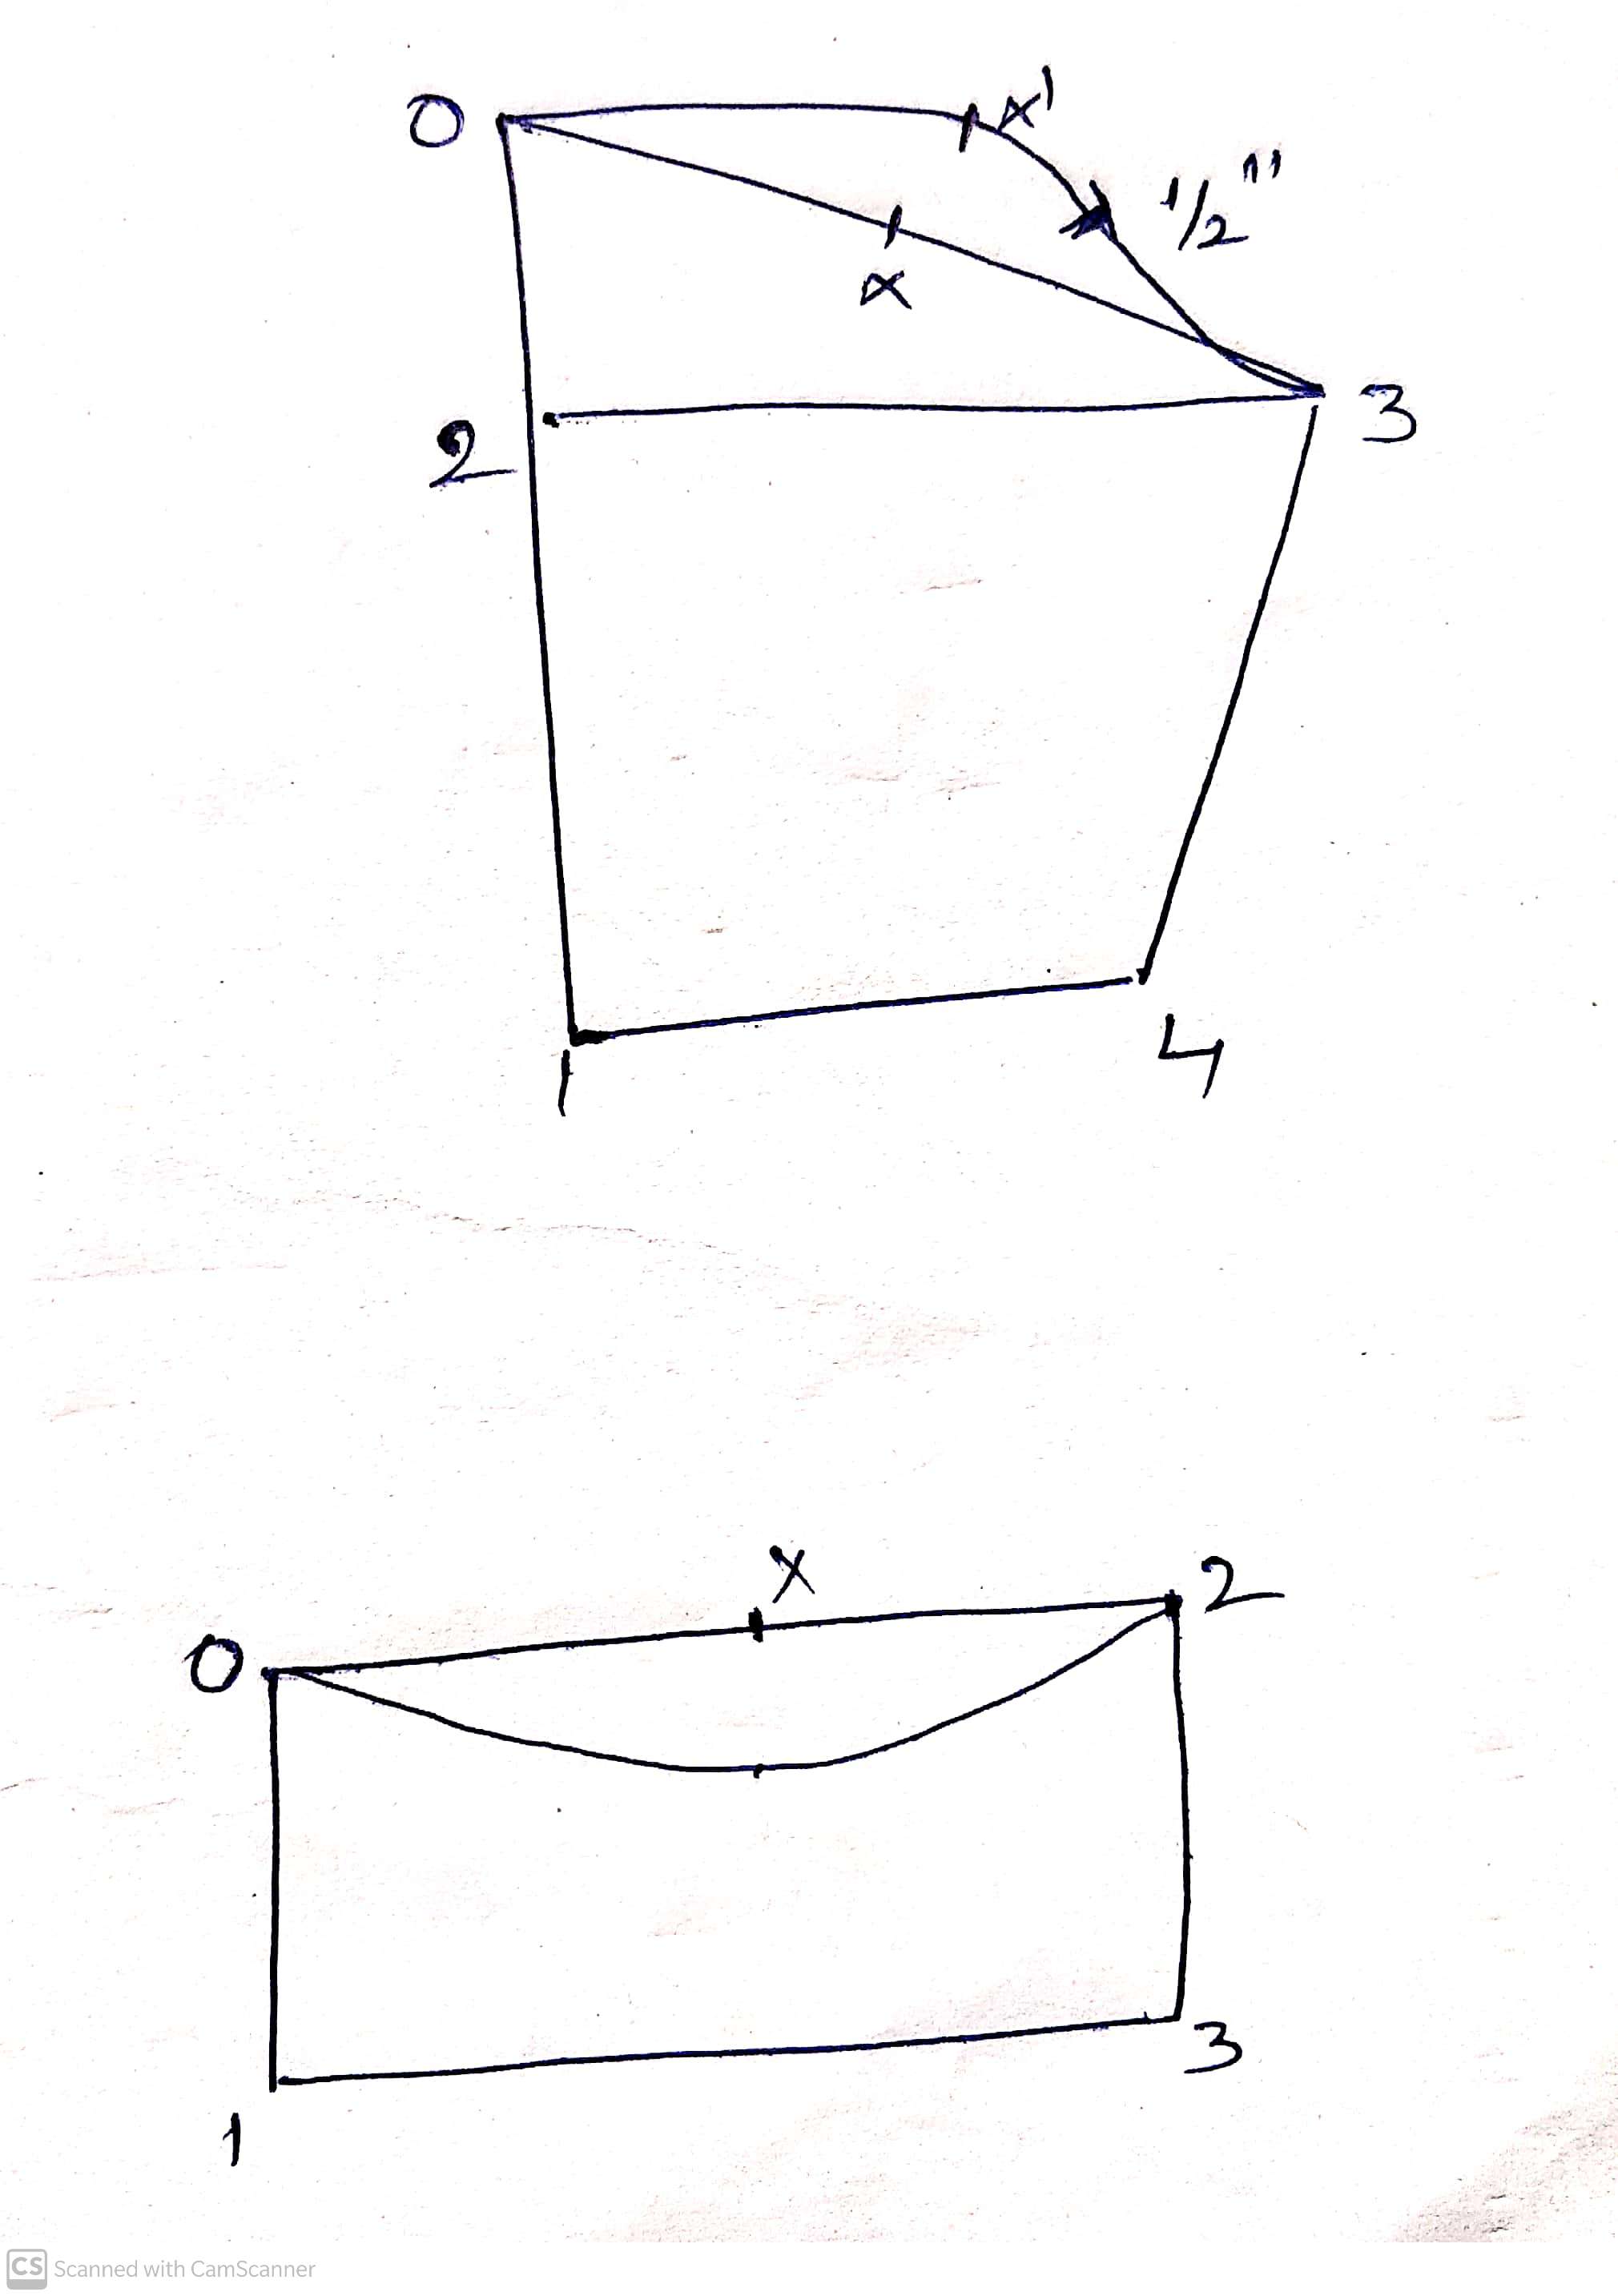 0
x'
1/2"
x
3
2
1
4
x
2
0
3
1
CS Scanned with CamScanner